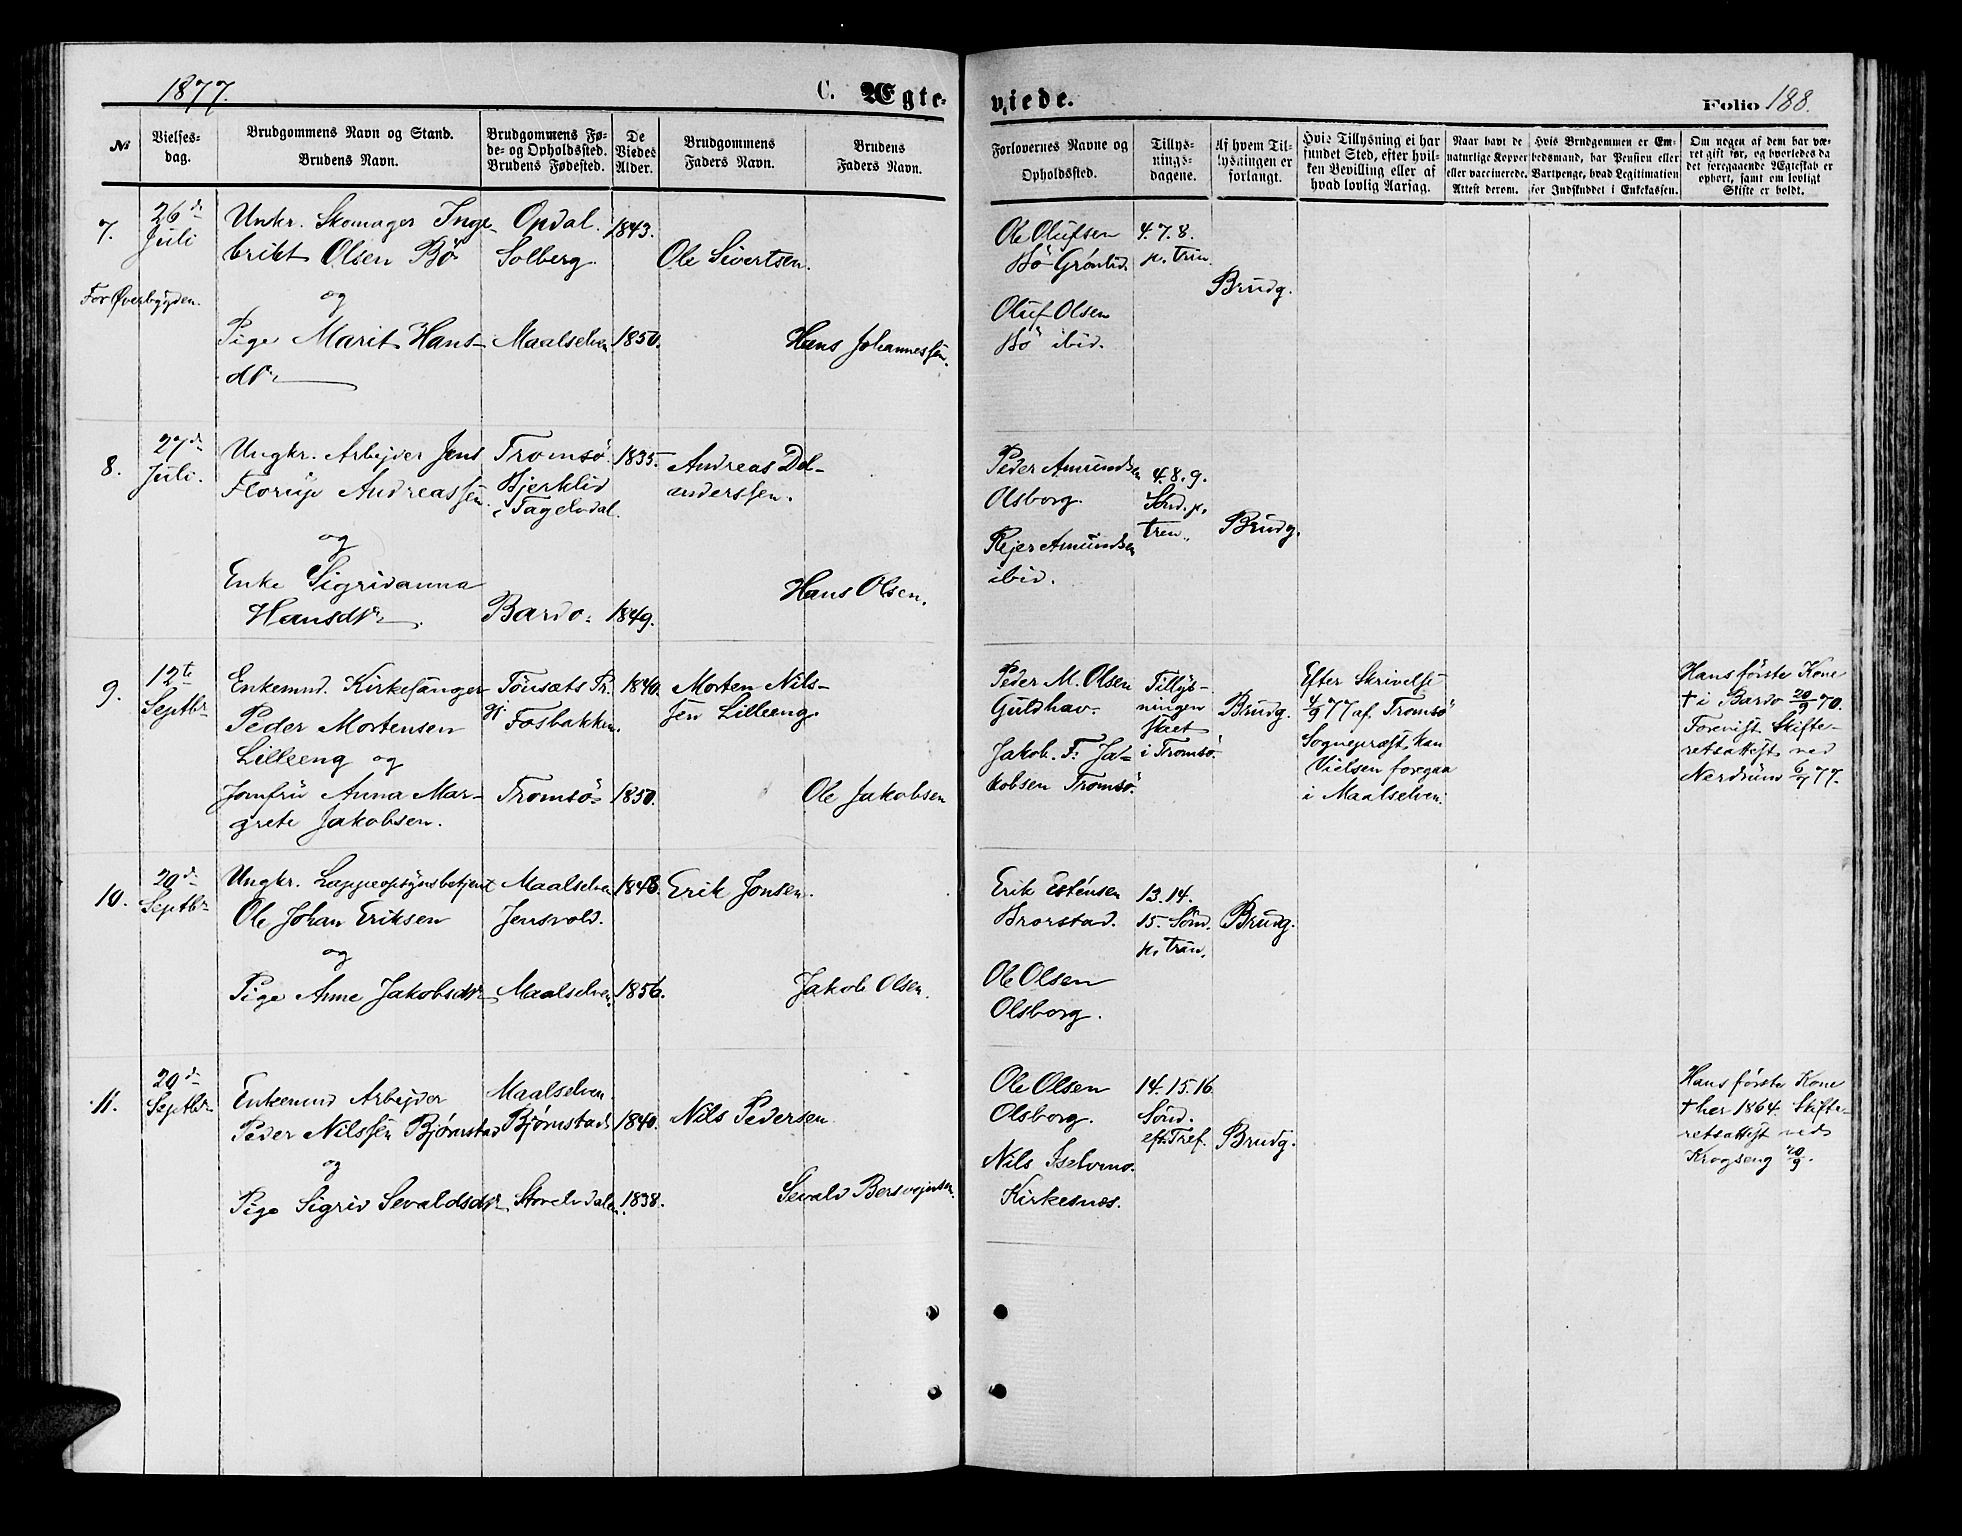 1877.
C. Ægteviede.
Folio 188.
№
Vielsesdag.
Brudgommens Navn og Stand.
Brudens Navn.
Brudgommens Føde- og Opholdssted.
Brudens Fødested.
De Viedes Alder.
Brudgommens Faders Navn.
Brudens Faders Navn.
Forlovernes Navne og Opholdssted.
Tillysningsdagene.
Af hvem Tillysningen er forlangt.
Hvis Tillysning ei har fundet Sted, efter hvilken Bevilling eller af hvad lovlig Aarsag.
Naar havt de naturlige Kopper eller vaccinerede. Attest derom.
Hvis Brudgommen er Embedsmand, har Pension eller Vartpenge, hvad Legitimation for Indskuddet i Enkekassen.
Om nogen af dem har været gift før, og hvorledes da det foregaaende Ægteskab er ophørt, samt om lovligt Skifte er holdt.
7.
26de Juli
For Øverbygden.
Unkr. Skomager Inge-
brikt Olsen Bö
og
Pige Marit Hans-
dtr
Opdal.
Solberg.
Maalselven
1843.
1850.
Ole Sivertsen.
Hans Johannessen.
Ole Olufsen
Bö Grönlid.
Oluf Olsen
Bö ibid.
4. 7. 8.
p. Trin.
Brudg.
8.
27de Juli.
Ungkr. Arbejder Jens
Andreassen.
og
Enke Sigridanna
Hansdtr
Tromsö.
Bjerklid
i Tagelvdal.
Bardo.
1835.
1849.
Andreas Del-
anderssen.
Hans Olsen.
Peder Amundsen
Olsborg.
Rejer Amundsen
ibid.
4. 8. 9.
Sönd. p.
tren.
Brudg.
9.
12te Septbr
Enkemnd. Kirkesanger
Peder Mortensen
Lilleeng og
Jomfru Anna Mar-
grete Jakobsen.
Tönsæts Pr.
gj.
Fosbakken.
Tromsö
1840.
1850.
Morten Nils-
sen Lilleeng.
Ole Jakobsen
Peder M. Olsen
Guldhav.
Jakob. F. Ja-
kobsen Tromsö.
Tillys-
ningen
skeet
i Tromsö.
Brudg.
Efter Skrivelse
4/9 77 af Tromsö
Sognepræst kan
Vielsen foregaa
i Maalselven.
Hans første Kone
† i Bardo 20/9 70.
Forevist Skifte-
retsattest ved
Nerdrum 6/7 77.
10.
20de Septbr
Ungkr. Lappeopsynsbetjent
Ole Johan Eriksen
og
Pige Anne Jakobsdtr
Maalselven
Jensvold.
Maalselven.
1848.
1856.
Erik Jonsen.
Jakob Olsen.
Erik Esténsen
Brorstad.
Ole Olsen
Olsborg.
13. 14.
15. Sönd.
p. Trin.
Brudg.
11.
20de Septbr
Enkemnd Arbejder
Peder Nilssen Bjørnstad
og
Pige Sigrid Sevaldsdtr
Maalselven.
Bjørnstad
1840.
1838.
Nils Pedersen
Sevald Bersvejnsen.
Ole Olsen
Olsborg.
Nils Iselvmo.
Kirkesnæs.
14. 15. 16
Sönd.
eft. Tref.
Brudg.
Hans første Kone
† her 1864. Skifte-
retsattest ved
Krogseng 20/9.